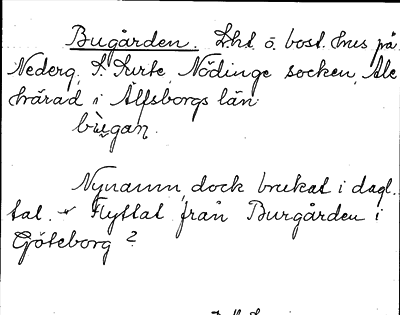 Bugården. Lht. o. bost. hus på
Nederg, S. Surte, Nödinge socken, Ale
härad i Älfsborgs län
bugan.
Nynamn, dock brukat i dagl.
tal. Flyttat från Burgården i
Göteborg?